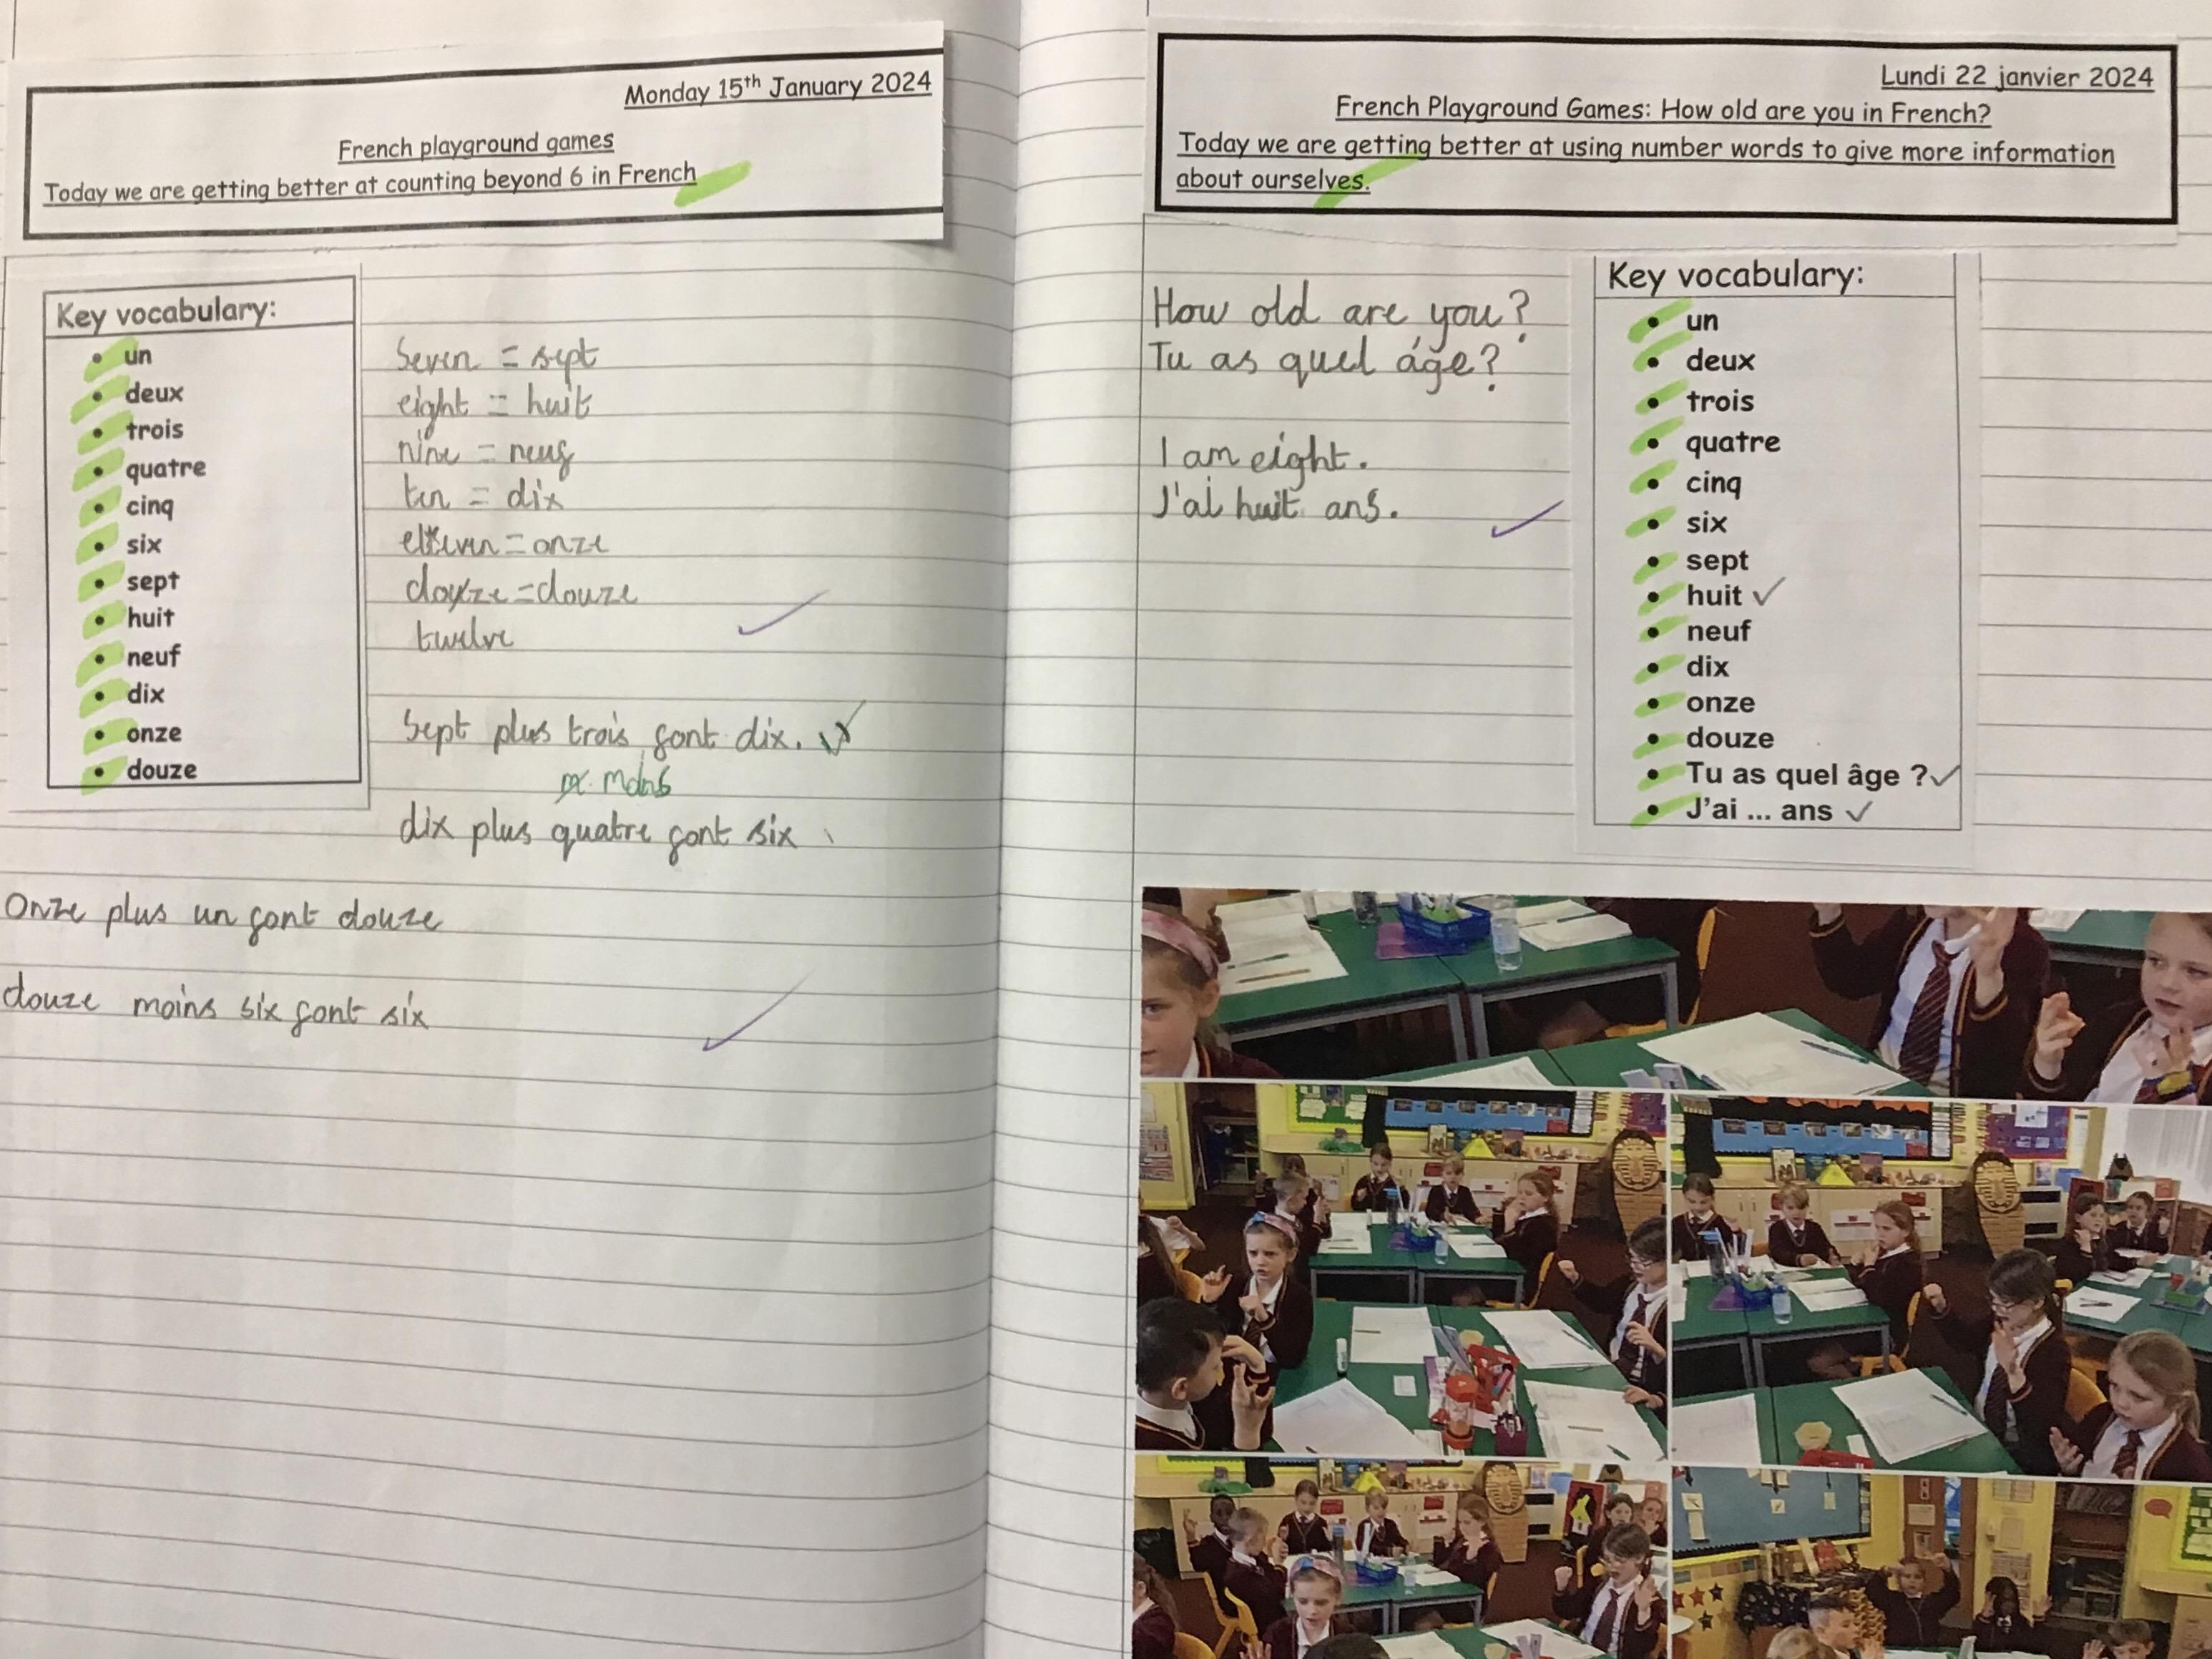 Monday 15th January 2024
French playground games
Today we are getting better at counting beyond 6 in French
Key vocabulary:
• un
• deux
• trois
• quatre
• cinq
• six
• sept
• huit
• neuf
• dix
• onze
• douze
seven = sept
eight = huit
nine = neuf
ten = dix
eleven = onze
douze = douze
twelve
Sept plus trois font dix.
moins
dix plus quatre font six
Onze plus un font douze
douze moins six font six
Lundi 22 janvier 2024
French Playground Games: How old are you in French?
Today we are getting better at using number words to give more information
about ourselves.
How old are you?
Tu as quel áge?
I am eight.
J'ai huit ans.
Key vocabulary:
• un
• deux
• trois
• quatre
• cinq
• six
• sept
• huit ✓
• neuf
• dix
• onze
• douze
• Tu as quel âge ? ✓
• J'ai ... ans ✓